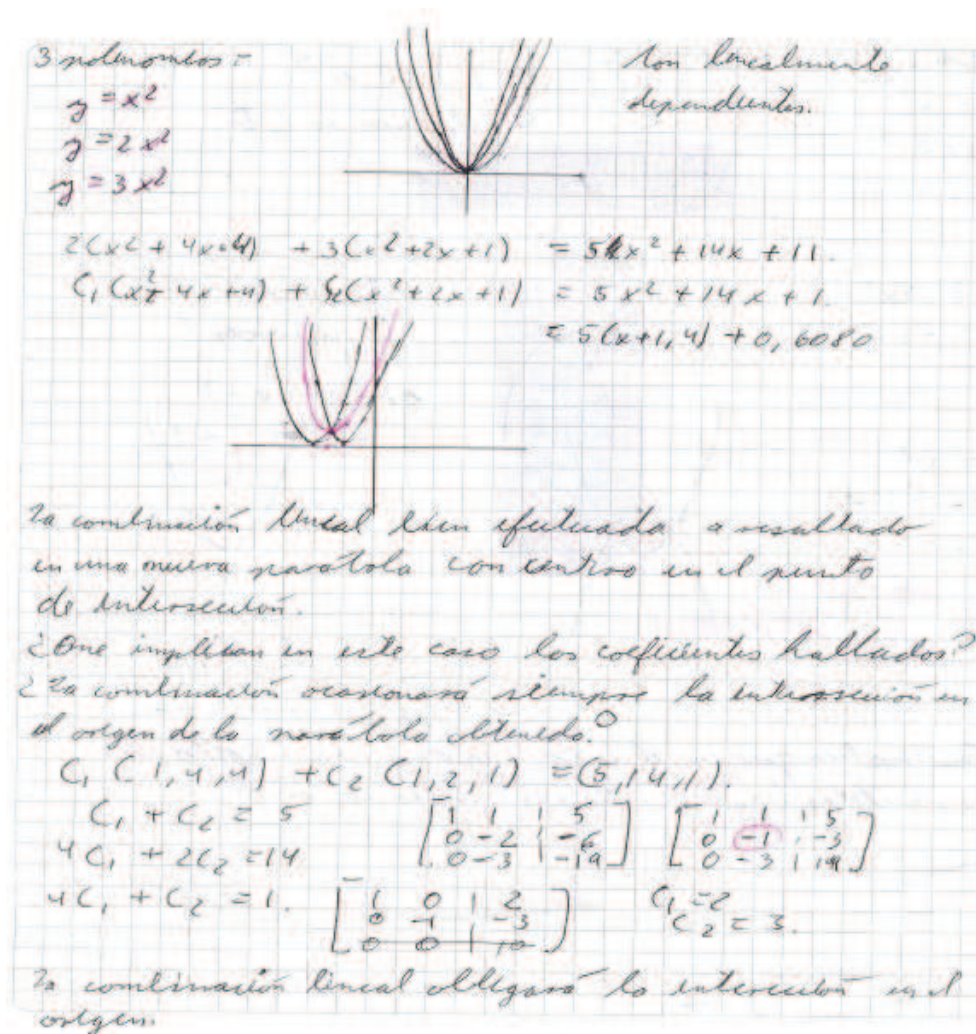 3 polinomios =
y = x²
y = 2x²
y = 3x²
son linealmente
dependientes.
2(x² + 4x+4) + 3(x²+2x+1) = 5x² + 14x + 11.
C₁(x²+ 4x+4) + C₂(x²+2x+1) = 5x² + 14x + 1.
= 5(x+1,4) + 0,6080
La combinación lineal bien efectuada a resultado
en una nueva parábola con centro en el punto
de intersección.
¿Que implican en este caso los coeficientes hallados?
¿La combinación ocasionará siempre la intersección en
el origen de la parábola obtenida?
C₁ (1,4,4) + C₂ (1,2,1) = (5,14,1).
C₁ + C₂ = 5
4C₁ + 2C₂ = 14
4C₁ + C₂ = 1.
[1 1 | 5
0 -2 | -6
0 -3 | -19]
[1 1 | 5
0 -1 | -3
0 -3 | 19]
[1 0 | 2
0 -1 | -3
0 0 | 10]
C₁ = 2
C₂ = 3.
La combinación lineal obligará la intersección en el
origen.